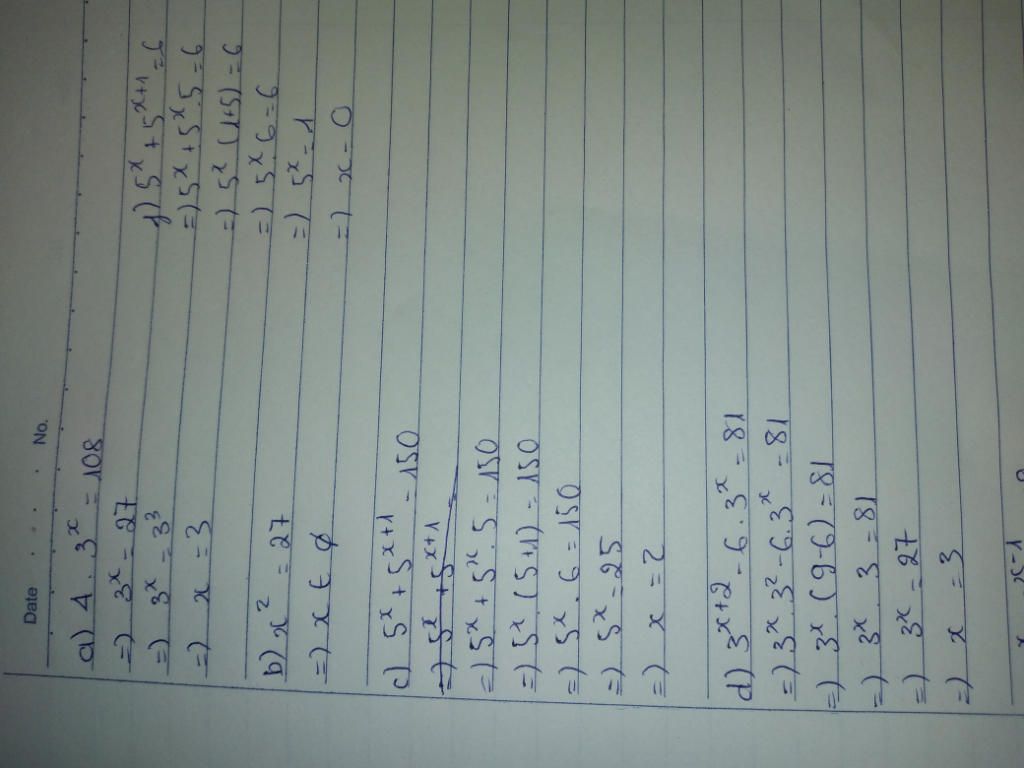 Date . . . . No.
a) 4 . 3^x = 108
=) 3^x = 27
=) 3^x = 3^3
=) x = 3
b) x^2 = 27
=) x ∈ ∅
c) 5^x + 5^x+1 = 150
=) 5^x + 5^x+1 =
=) 5^x + 5^x . 5 = 150
=) 5^x . (5+1) = 150
=) 5^x . 6 = 150
=) 5^x = 25
=) x = 2
d) 3^x+2 - 6 . 3^x = 81
=) 3^x . 3^2 - 6 . 3^x = 81
=) 3^x . (9-6) = 81
=) 3^x . 3 = 81
=) 3^x = 27
=) x = 3
) 5^x + 5^x+1 = 6
=) 5^x + 5^x . 5 = 6
=) 5^x (1+5) = 6
=) 5^x . 6 = 6
=) 5^x = 1
=) x = 0